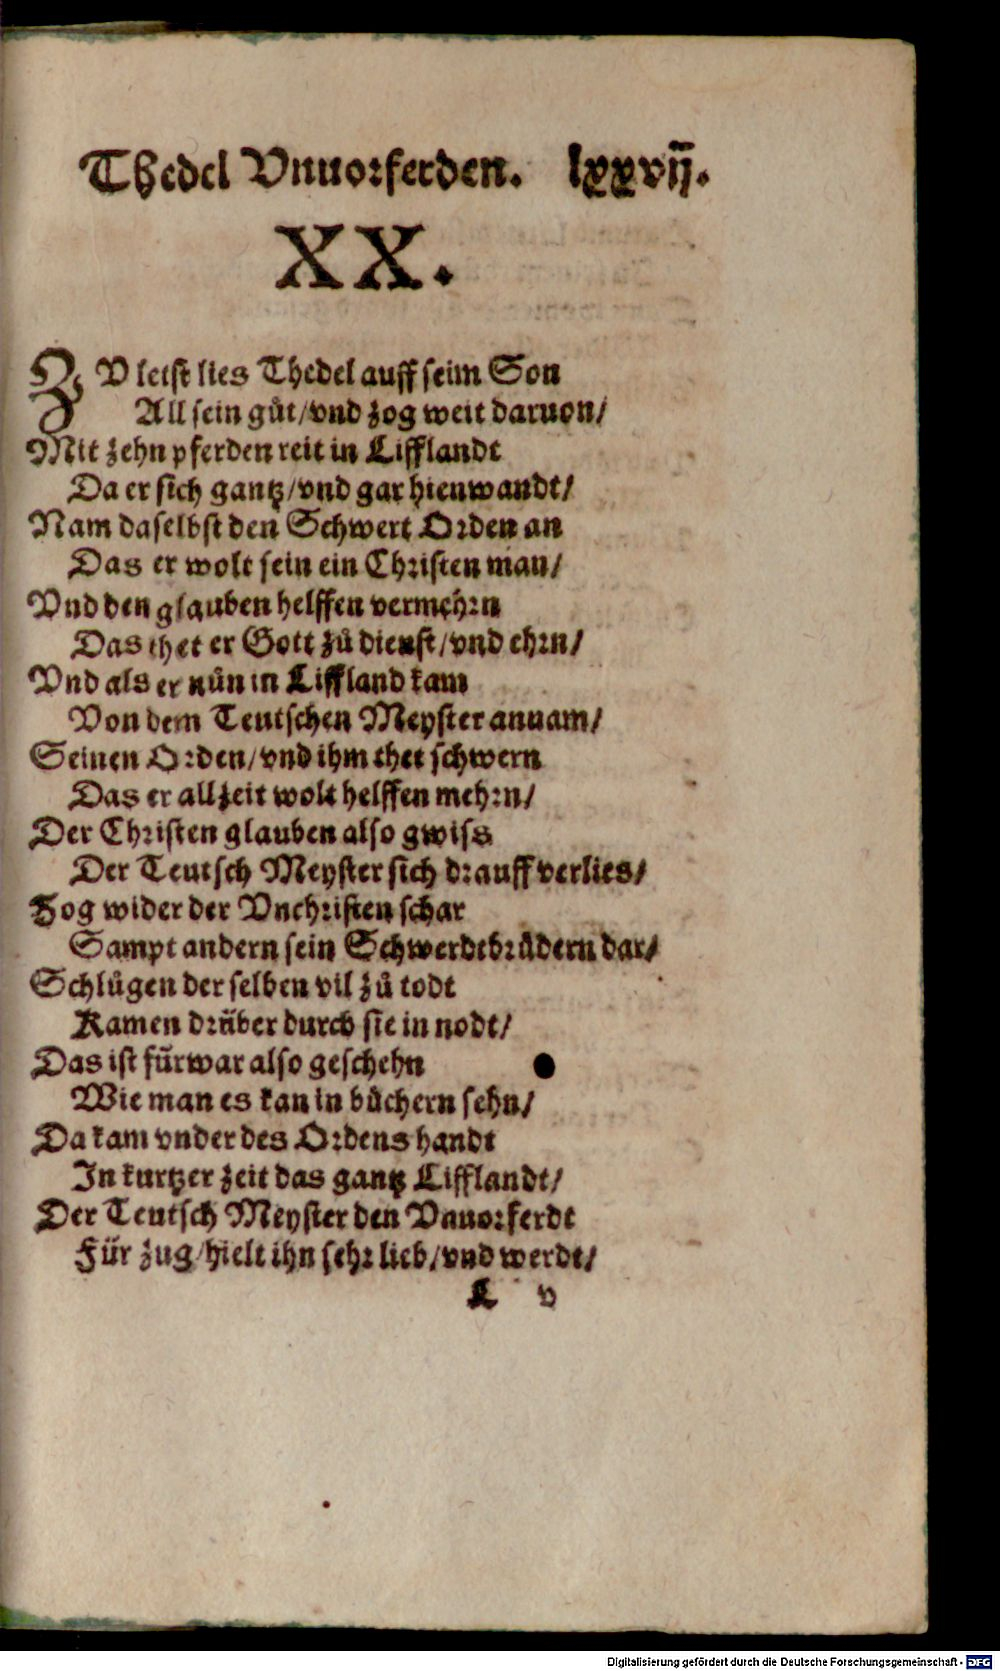 Thedel Vnuorferden. lxxvij.
XX.
ZV letst lies Thedel auff seim Son
All sein gůt/vnd zog weit daruon/
Mit zehn pferden reit in Lifflandt
Da er sich gantz/vnd gar hienwandt/
Nam daselbst den Schwert Orden an
Das er wolt sein ein Christen man/
Vnd den glauben helffen vermehrn
Das thet er Gott zů dienst/vnd ehrn/
Vnd als er nůn in Liffland kam
Von dem Teutschen Meyster annam/
Seinen Orden/vnd ihm thet schwern
Das er allzeit wolt helffen mehrn/
Der Christen glauben also gwiss
Der Teutsch Meyster sich drauff verlies/
Zog wider der Vnchristen schar
Sampt andern sein Schwerdtbrůdern dar/
Schlůgen der selben vil zů todt
Kamen drüber durch sie in nodt/
Das ist fürwar also geschehn
Wie man es kan in bůchern sehn/
Da kam vnder des Ordens handt
In kurtzer zeit das gantz Lifflandt/
Der Teutsch Meyster den Vnuorferdt
Für zug/hielt ihn sehr lieb/vnd werdt/
L v
Digitalisierung gefördert durch die Deutsche Forschungsgemeinschaft - DFG